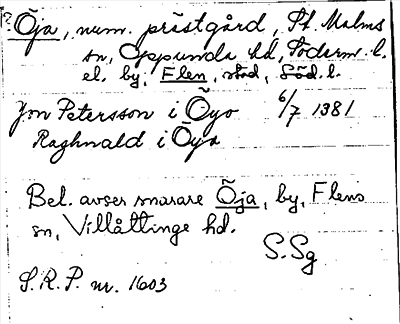 ? Öja, num. prästgård, St. Malms
sn, Oppunda hd, Söderm. l.
el. by, Flen, stad, Söd. l.
Jon Petersson i Öyo 6/7 1381
Raghnald i Öya
Bel. avser snarare Öja, by, Flens
sn, Villåttinge hd.
S.Sg
S.R.P. nr. 1603